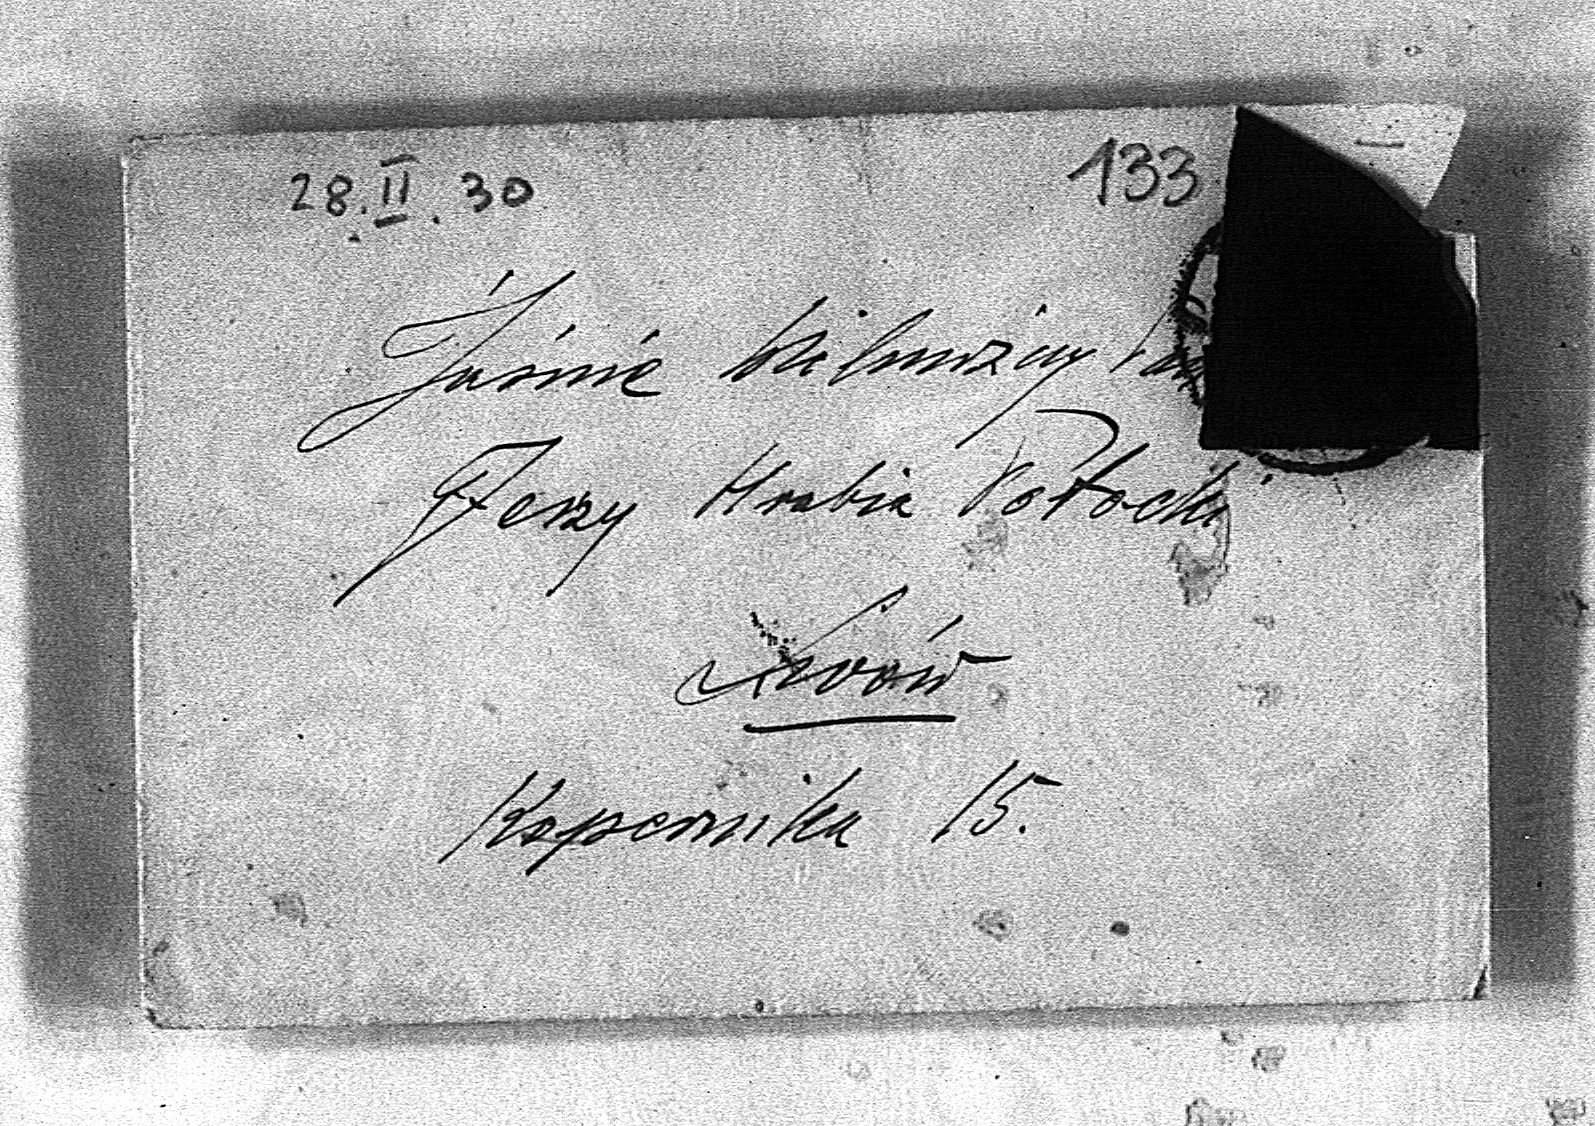 28.II.30
133
Jaśnie Wielmożny Pan
Jerzy Hrabia Potocki
Lwów
Kopernika 15.